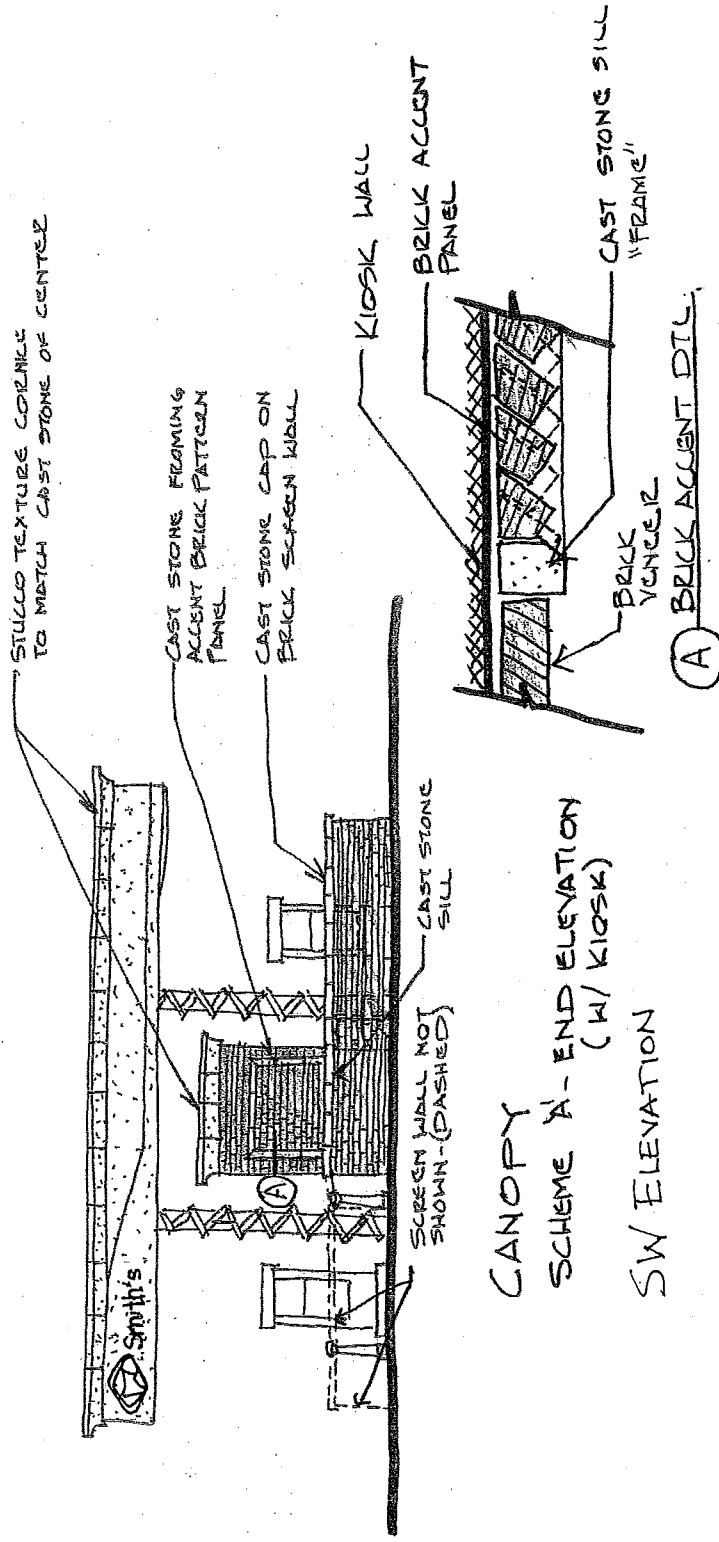 STUCCO TEXTURE CORNICE
TO MATCH CAST STONE OF CENTER
CAST STONE FRAMING
ACCENT BRICK PATTERN
PANEL
CAST STONE CAP ON
BRICK SCREEN WALL
Smith's
A
CAST STONE
SILL
SCREEN WALL NOT
SHOWN-(DASHED)
CANOPY
SCHEME 'A' - END ELEVATION
(W/ KIOSK)
SW ELEVATION
KIOSK WALL
BRICK ACCENT
PANEL
CAST STONE SILL
"FRAME"
BRICK
VENEER
A BRICK ACCENT DTL.